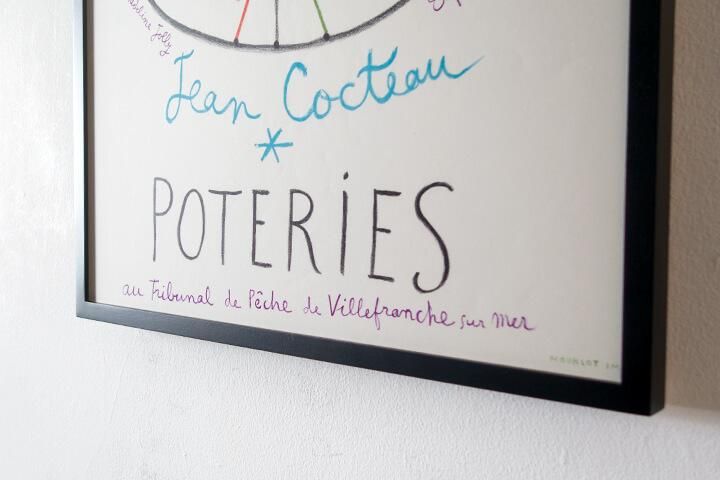 Jolly
Jean Cocteau
*
POTERiES
au Tribunal de Pêche de Villefranche sur mer
MOURLOT IM